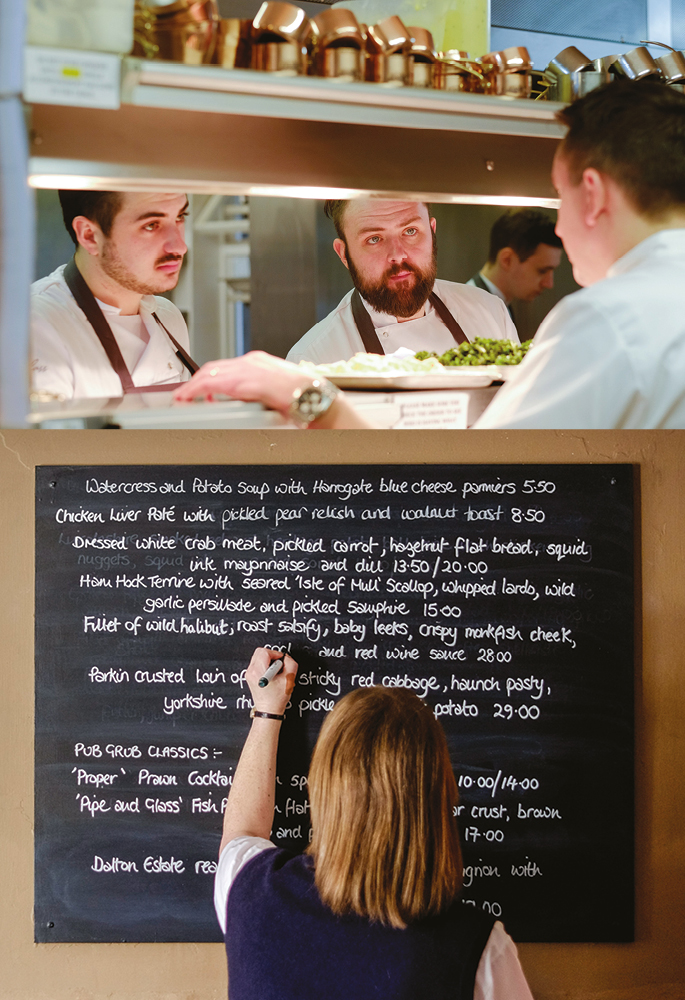 Watercress and Potato Soup with Harrogate blue cheese parmiers 5·50
Chicken Liver Paté with pickled pear relish and walnut toast 8·50
Dressed white crab meat, pickled carrot, hazelnut flat bread, squid
ink mayonnaise and dill 13·50/20·00
Ham Hock Terrine with seared 'Isle of Mull' Scallop, whipped lardo, wild
garlic persillade and pickled Samphire 15·00
Fillet of wild halibut, roast salsify, baby leeks, crispy monkfish cheek,
and red wine sauce 28·00
Parkin crusted Loin of sticky red cabbage, haunch pasty,
yorkshire pickle potato 29·00
PUB GRUB CLASSICS :-
'Proper' Prawn Cocktail 10·00/14·00
'Pipe and Glass' Fish crust, brown
and 17·00
Dalton Estate with